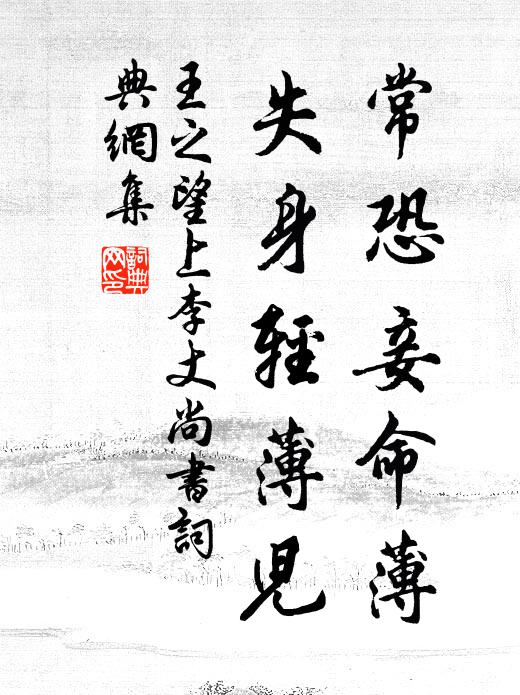 常恐妾命薄
失身輕薄兒
王之望上李丈尚書詞
典網集
詞典
网印